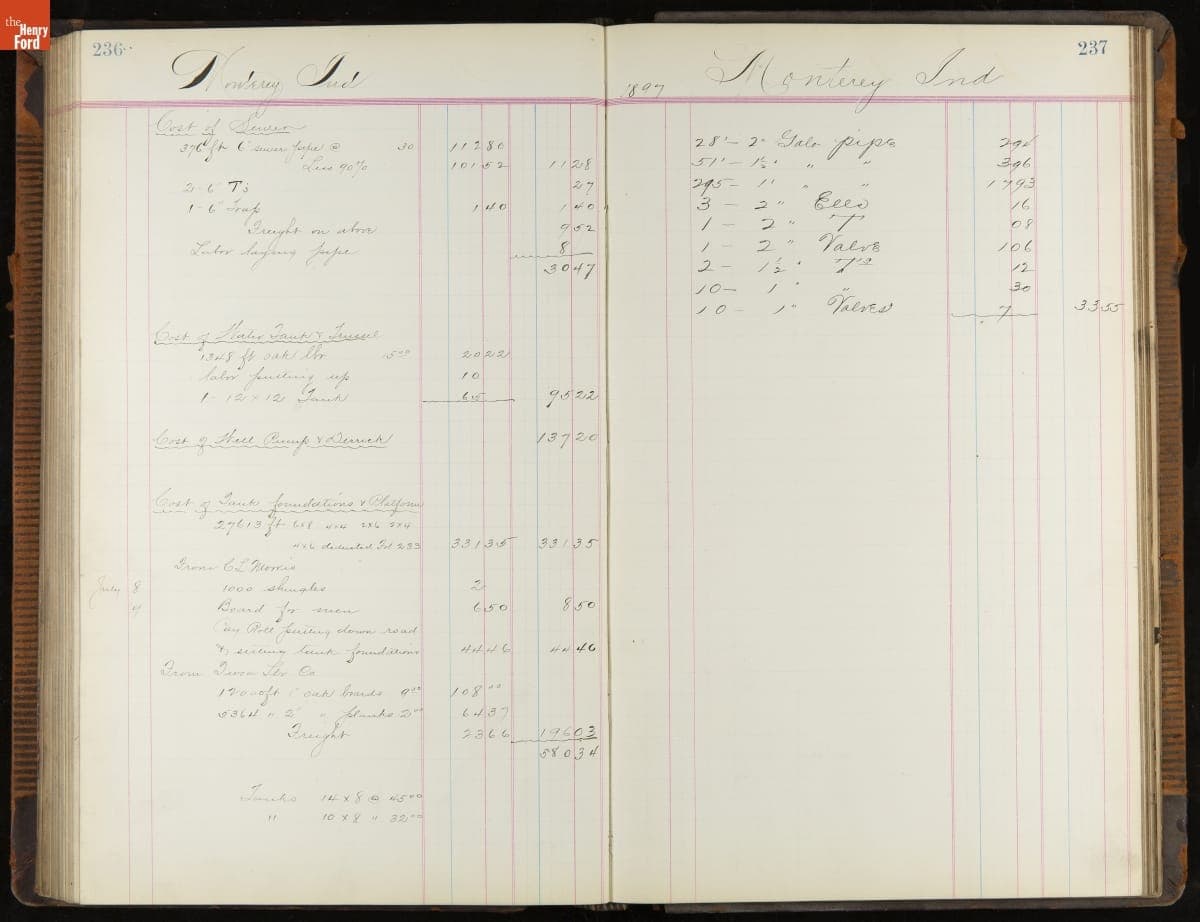 the Henry Ford
236
Monterey Ind
Cost of Sewer
376 ft 6" sewer pipe @ 30 112 80
Less 90% 101 52 11 28
2-6" Ts 27
1-6" Trap 1 40 1 40
Freight on above 9 52
Labor laying pipe 8
30 47
Cost of Water Tank & Trussel
1348 ft oak lbr 15 00 20 22
labor putting up 10
1- 12 x 12 Tank 65 95 22
Cost of Well Pump & Derrick 137 20
Cost of Tank foundations & Platform
27613 ft 6x8 4x4 2x6 2x4
4x6 deducted Fol 233 331 35 331 35
From C L Morris
July 8 1000 shingles 2
Board for men 6 50 8 50
Pay Roll putting down road
& setting tank foundations 44 46 44 46
From Lbr Co
12000 ft 1" oak boards 9 00 108 00
5364 " 2" " planks 64 37
Freight 23 66 196 03
580 34
Tanks 14 x 8 @ 45 00
" 10 x 8 " 32 00
237
1897
Monterey Ind
28' - 2" Galv pipe
51' - 1½" " " 3 96
295 - 1" " " 17 93
3 - 2" Ells 16
1 - 2" T 08
1 - 2" Valve 1 06
2 - 1½" Ts 12
10 - 1" " 30
10 - 1" Valves 7 33 55